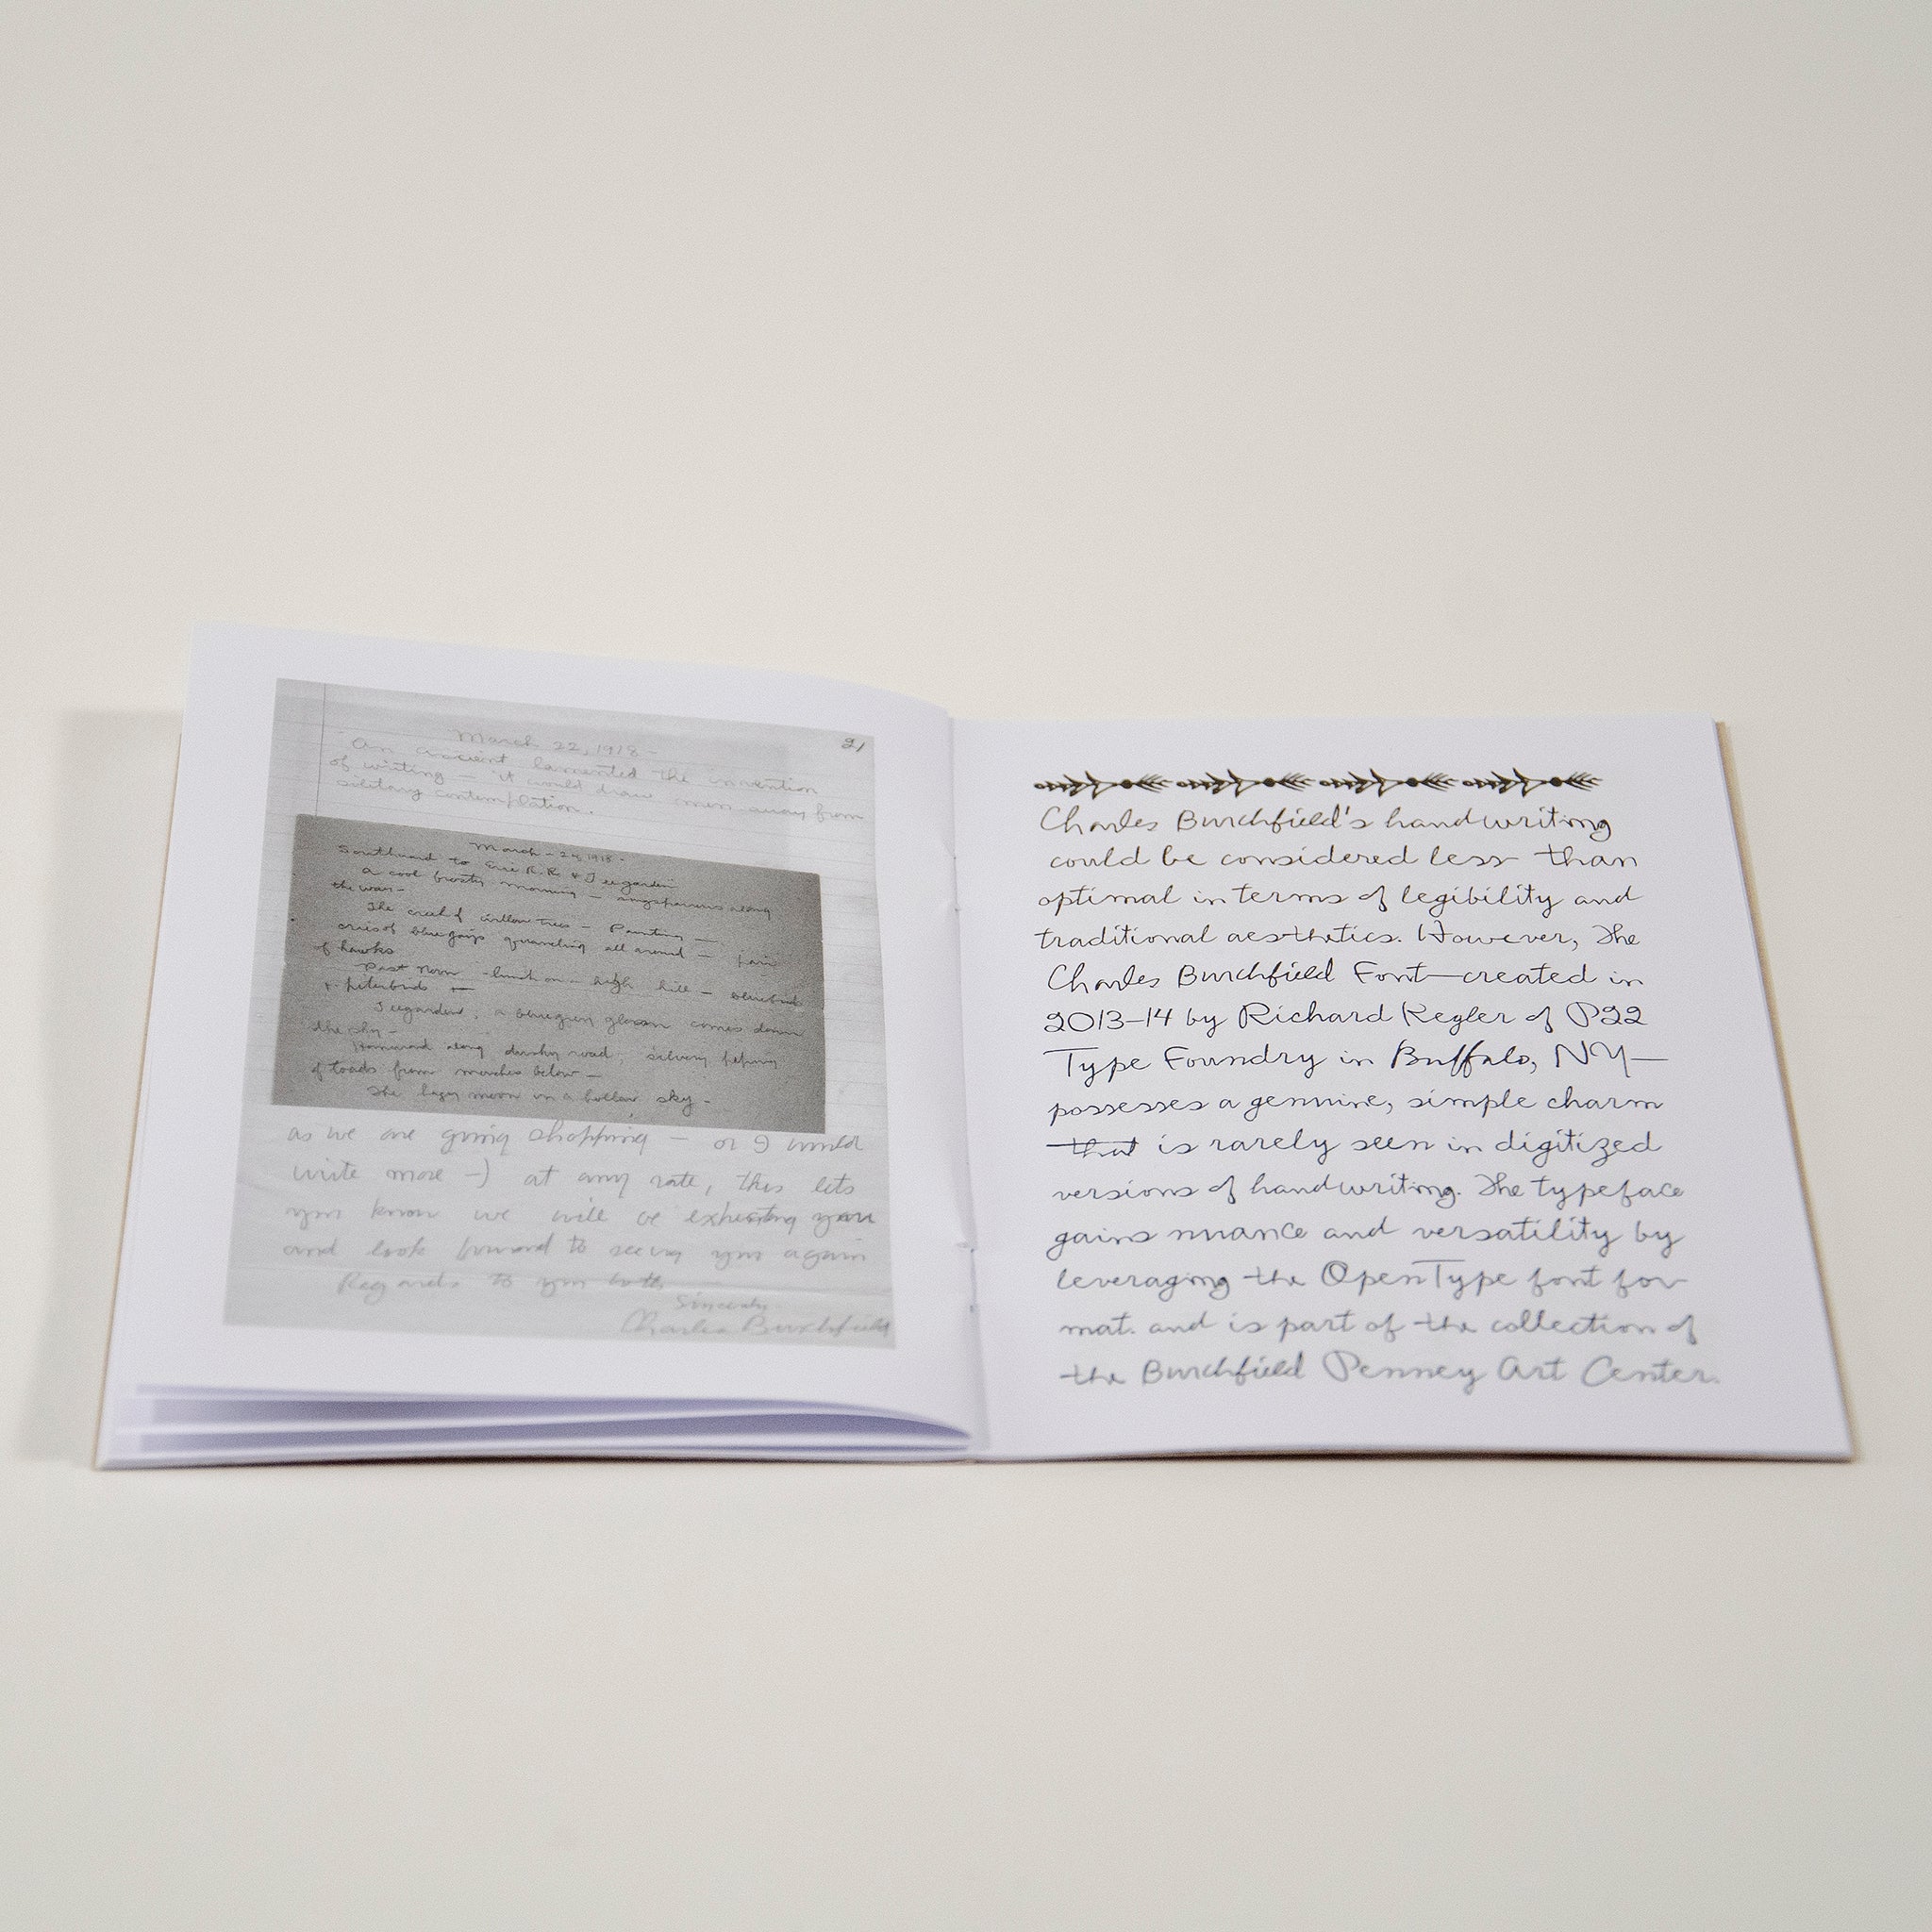 March 22, 1918 -
21
An ancient lamented the invention
of writing — it would draw men away from
solitary contemplation.
March - 24, 1918 -
Southward to Erie R.R. & Teegarden
a cool frosty morning — along
the way -
The of willow trees - Painting —
cries of blue jays all around — pair
of hawks
Past noon - lunch on high hill — bluebirds
+
Teegarden, a bluegrey gloom comes down
the sky -
Homeward along road, silvery piping
of toads from marshes below —
The moon in a hollow sky -
as we are going shopping — or I would
write more -) at any rate, this lets
you know we will be expecting you
and look forward to seeing you again
Regards to you both
Sincerely
Charles Burchfield
Charles Burchfield's handwriting
could be considered less than
optimal in terms of legibility and
traditional aesthetics. However, the
Charles Burchfield Font—created in
2013–14 by Richard Kegler of P22
Type Foundry in Buffalo, NY—
possesses a genuine, simple charm
that is rarely seen in digitized
versions of handwriting. The typeface
gains nuance and versatility by
leveraging the OpenType font for
mat. and is part of the collection of
the Burchfield Penney Art Center.